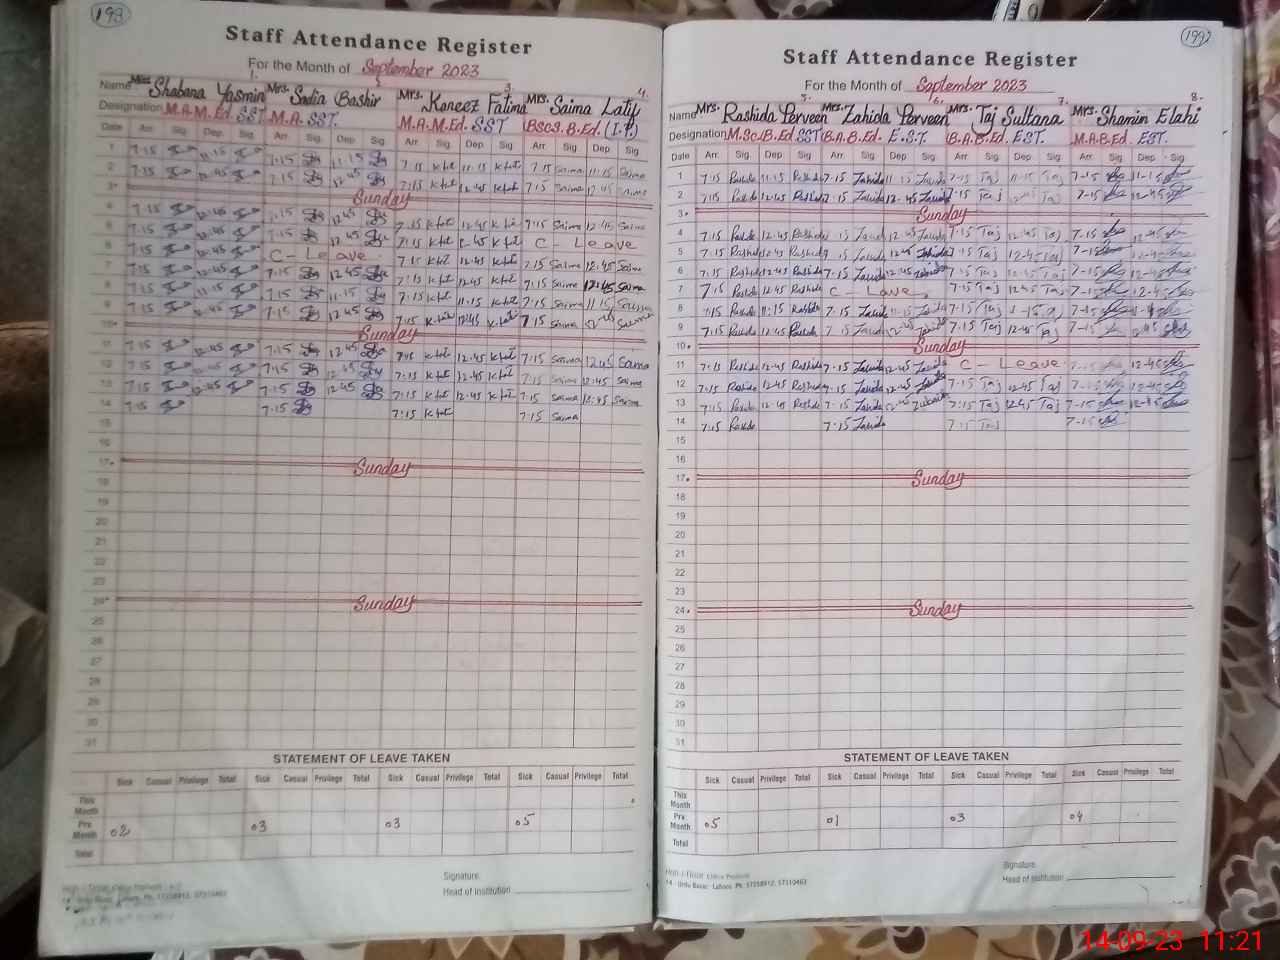 198
Staff Attendance Register
For the Month of September 2023
1. 3. 4.
Name Miss Shabana Yasmin Mrs. Sadia Bashir Mrs. Kaneez Fatima Mrs. Saima Latif
Designation M.A.M.Ed. SST M.A. SST. M.A.M.Ed. SST BSCS.B.Ed. (I.T)
Date Arr Sig Dep Sig Arr Sig Dep Sig Arr Sig Dep Sig Arr Sig Dep Sig
1 7:15 11:15 7:15 11:15 7:15 11:15 7:15 Saima 11:15 Saima
2 7:15 12:45 7:15 12:45 7:15 12:45 7:15 Saima 12:45 Saima
3 Sunday
4 7:15 12:45 7:15 12:45 7:15 12:45 7:15 Saima 12:45 Saima
5 7:15 12:45 7:15 12:45 7:15 12:45 C - Leave
6 7:15 12:45 C - Leave 7:15 12:45 7:15 Saima 12:45 Saima
7 7:15 12:45 7:15 12:45 7:15 12:45 7:15 Saima 12:45 Saima
8 7:15 11:15 7:15 11:15 7:15 11:15 7:15 Saima 11:15 Saima
9 7:15 12:45 7:15 12:45 7:15 12:45 7:15 Saima Saima
10 Sunday
11 7:15 12:45 7:15 12:45 7:15 12:45 7:15 Saima 12:45 Saima
12 7:15 12:45 7:15 12:45 7:15 12:45 7:15 Saima 12:45 Saima
13 7:15 12:45 7:15 12:45 7:15 12:45 7:15 Saima 12:45 Saima
14 7:15 7:15 7:15 7:15 Saima
15
17 Sunday
18
19
20
21
22
23
24 Sunday
25
26
27
28
29
30
31
STATEMENT OF LEAVE TAKEN
Sick Casual Privilege Total Sick Casual Privilege Total Sick Casual Privilege Total Sick Casual Privilege Total
This Month
Pre Month 02 03 03 05
Total
Signature.
Head of Institution
14 - Urdu Bazar, Lahore. Ph: 37358912, 37310463
199
Staff Attendance Register
For the Month of September 2023
5. 6. 7. 8.
Name Mrs. Rashida Perveen Mrs. Zahida Perveen Mrs. Taj Sultana Mrs. Shamim Elahi
Designation M.Sc.B.Ed SST B.A.B.Ed. E.S.T. B.A.B.Ed. EST. M.A.B.Ed. EST.
Date Arr Sig. Dep Sig. Arr Sig. Dep Sig. Arr Sig. Dep Sig. Arr Sig. Dep Sig.
1 7:15 Rashida 11:15 Rashida 7:15 Zahida 11:15 Zahida 7:15 Taj 11:15 Taj 7-15 11-15
2 7:15 Rashida 12:45 Rashida 7:15 Zahida 12:45 Zahida 7:15 Taj 12:45 Taj 7-15 12-45
3 Sunday
4 7:15 Rashida 12:45 Rashida 7:15 Zahida 12:45 Zahida 7:15 Taj 12:45 Taj 7-15 12-45
5 7:15 Rashida 12:45 Rashida 7:15 Zahida 12:45 Zahida 7:15 Taj 12:45 Taj 7-15 12-45
6 7:15 Rashida 12:45 Rashida 7:15 Zahida 12:45 Zahida 7:15 Taj 12:45 Taj 7-15 12-45
7 7:15 Rashida 12:45 Rashida C - Leave 7:15 Taj 12:45 Taj 7-15 12-45
8 7:15 Rashida 11:15 Rashida 7:15 Zahida 11:15 Zahida 7:15 Taj 11:15 Taj 7-15
9 7:15 Rashida 12:45 Rashida 7:15 Zahida 12:45 Zahida 7:15 Taj 12:45 Taj 7-15 12-45
10 Sunday
11 7:15 Rashida 12:45 Rashida 7:15 Zahida 12:45 Zahida C - Leave 7-15 12-45
12 7:15 Rashida 12:45 Rashida 7:15 Zahida 12:45 Zahida 7:15 Taj 12:45 Taj 7-15 12-45
13 7:15 Rashida 12:45 Rashida 7:15 Zahida 12:45 Zahida 7:15 Taj 12:45 Taj 7-15 12-45
14 7:15 Rashida 7:15 Zahida 7:15 Taj 7-15
15
16
17 Sunday
18
19
20
21
22
23
24 Sunday
25
26
27
28
29
30
31
STATEMENT OF LEAVE TAKEN
Sick Casual Privilege Total Sick Casual Privilege Total Sick Casual Privilege Total Sick Casual Privilege Total
This Month
Pre Month 05 01 03 04
Total
Signature.
Head of Institution
14 - Urdu Bazar, Lahore. Ph: 37358912, 37310463
14-09-23 11:21